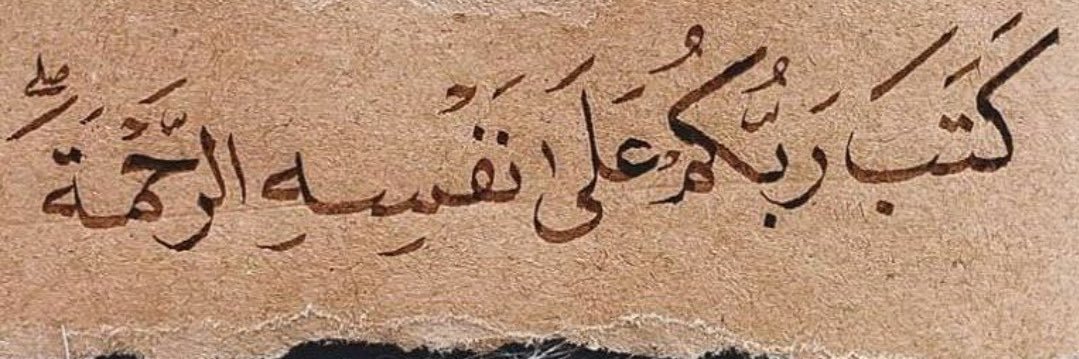 كَتَبَ رَبُّكُمْ عَلَىٰ نَفْسِهِ الرَّحْمَةَ ۖ